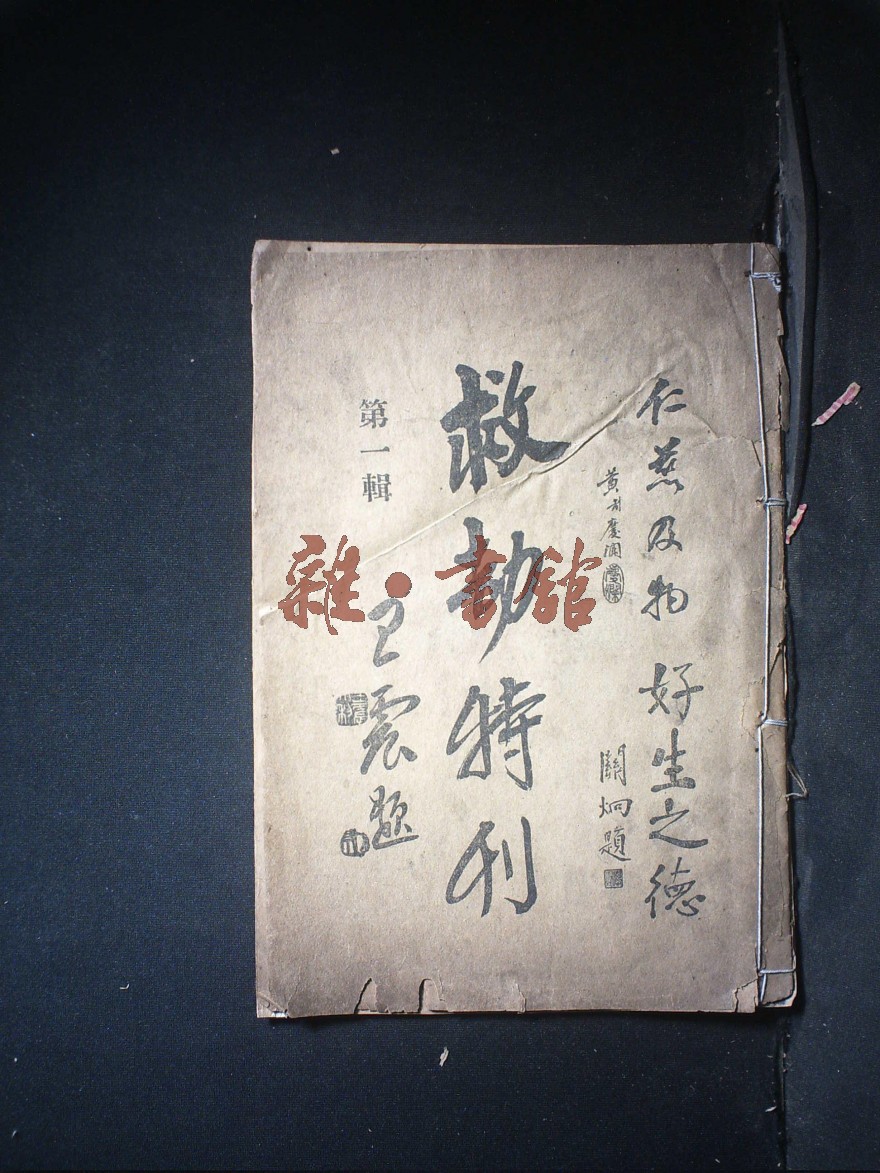 仁慈及物
黄慶瀾
好生之德
關炯題
救劫特刊
第一輯
王震題
雜·書館